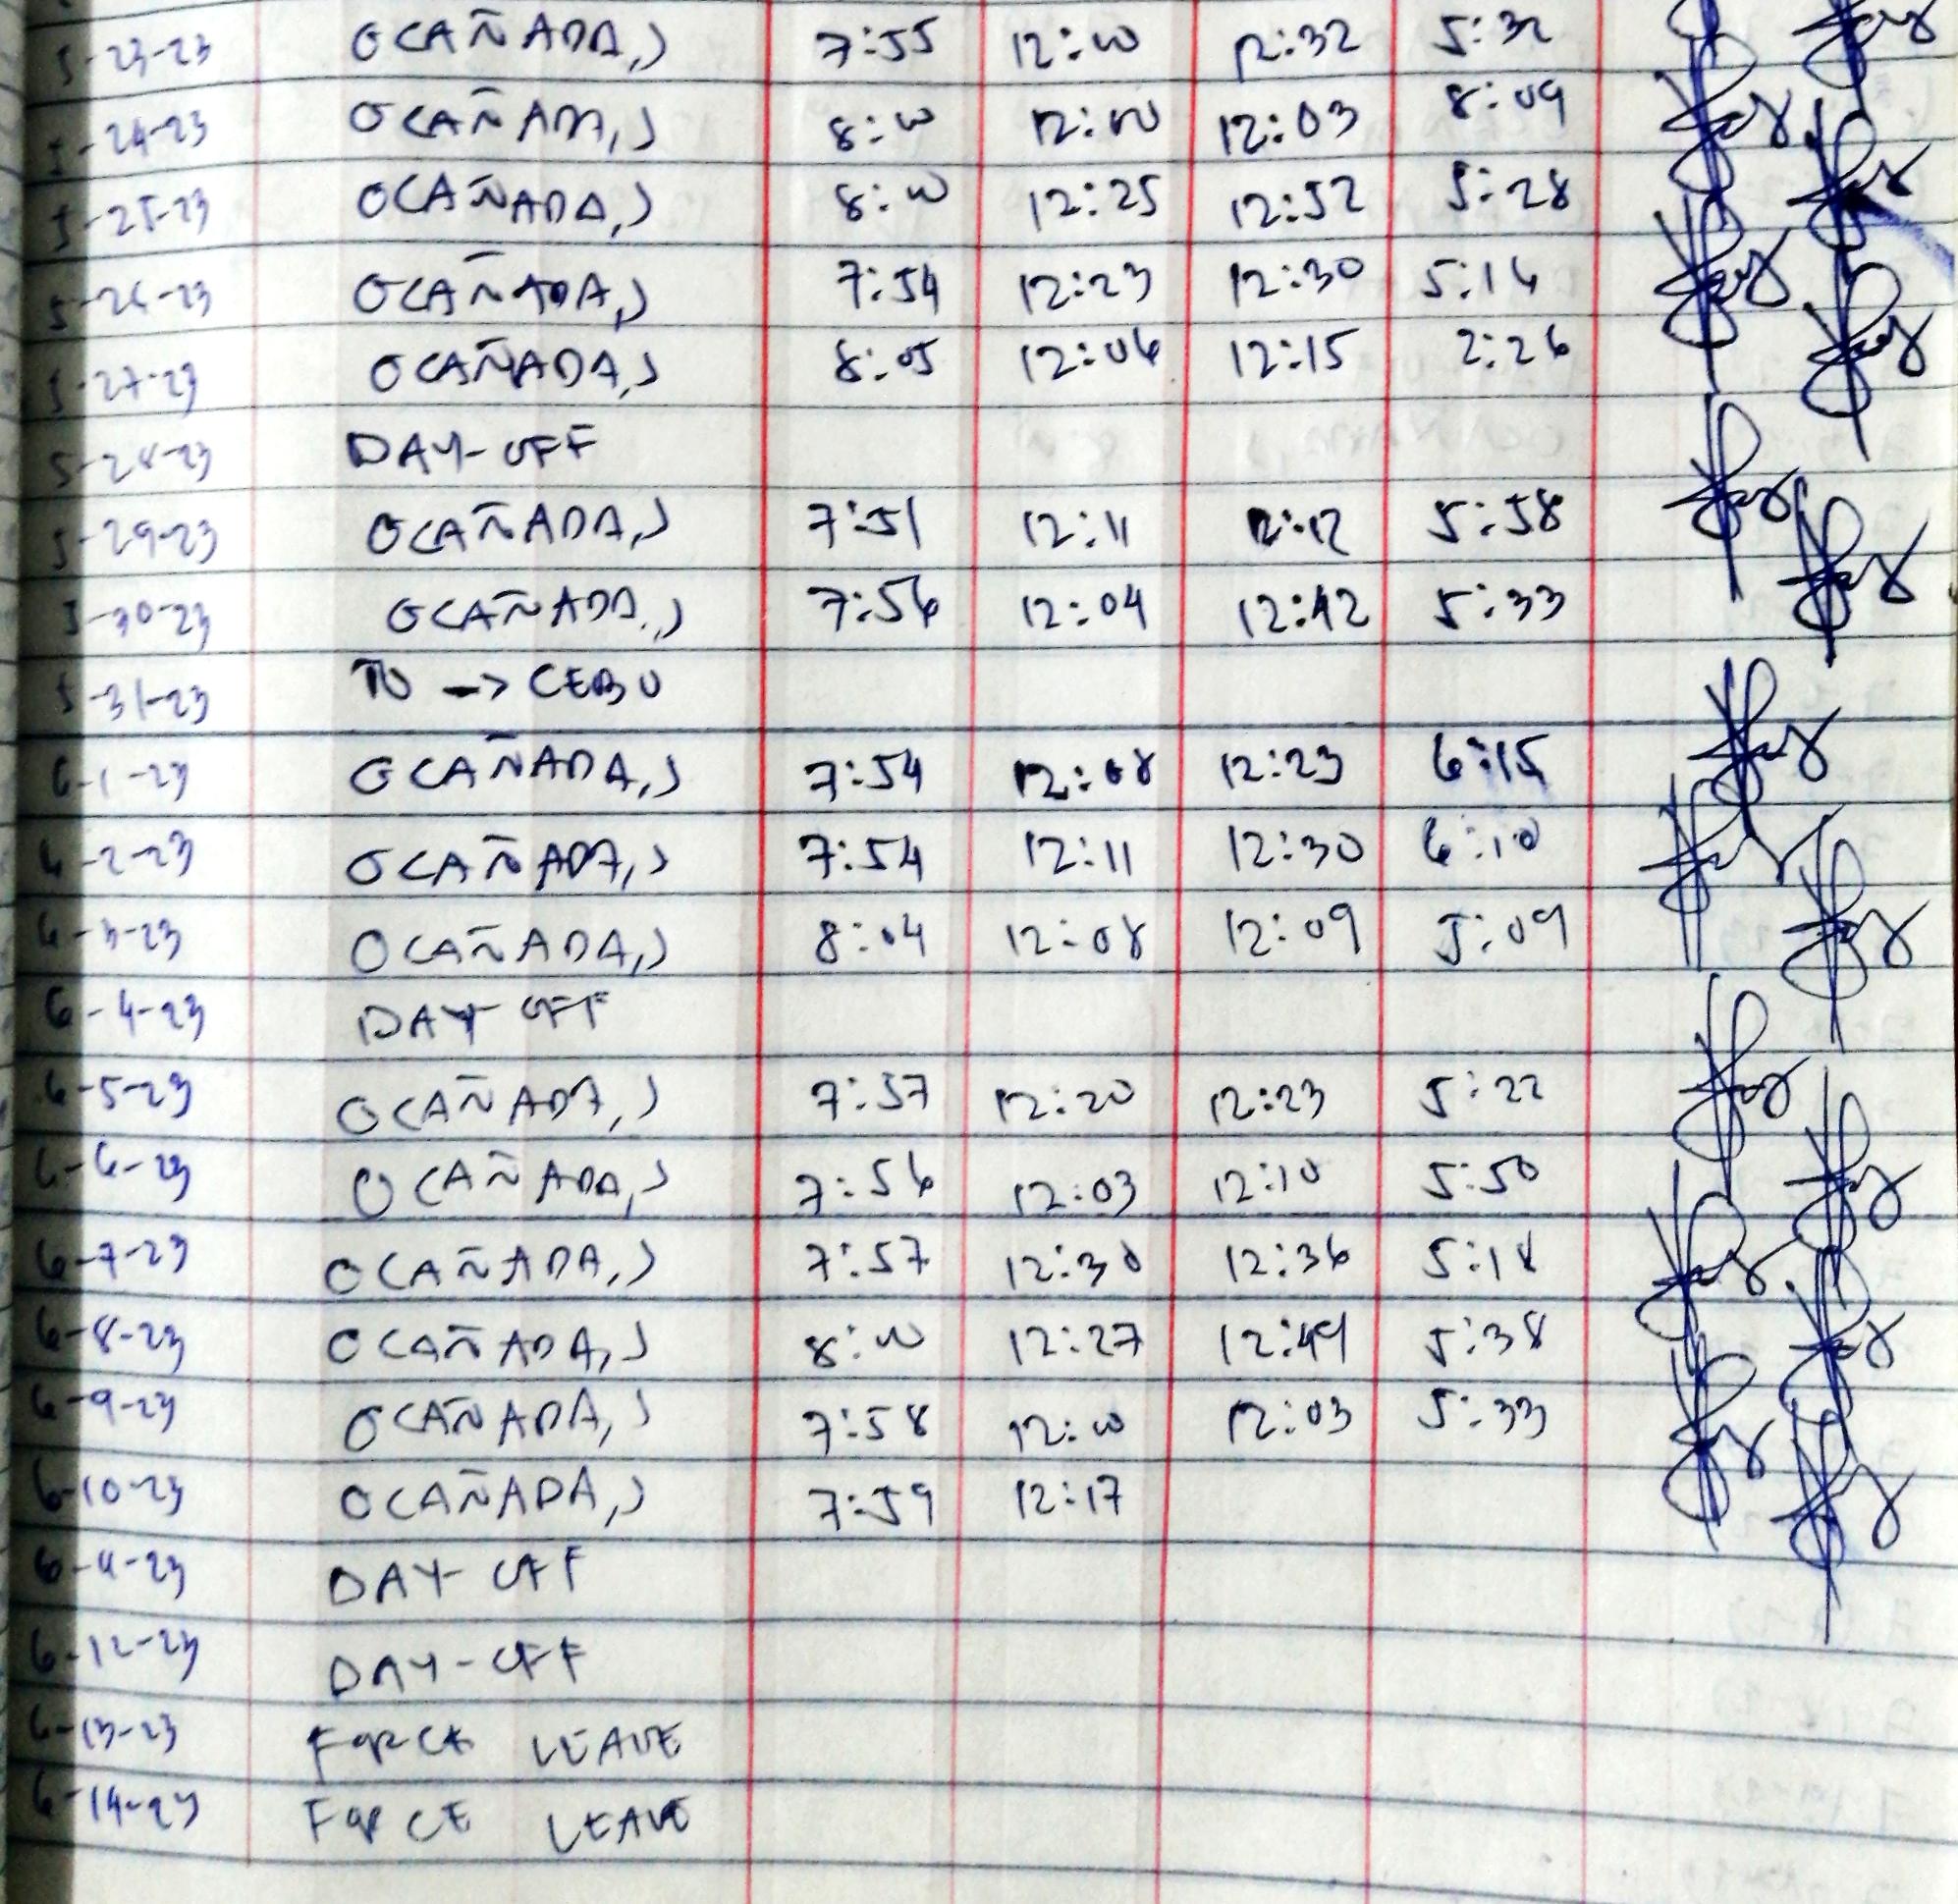 5-23-23 OCAÑADA,J 7:55 12:00 12:32 5:32
5-24-23 OCAÑADA,J 8:00 12:00 12:03 8:09
5-25-23 OCAÑADA,J 8:00 12:25 12:52 5:28
5-26-23 OCAÑADA,J 7:54 12:23 12:30 5:16
5-27-23 OCAÑADA,J 8:05 12:06 12:15 2:26
5-28-23 DAY-OFF
5-29-23 OCAÑADA,J 7:51 12:11 12:12 5:58
5-30-23 OCAÑADA,J 7:56 12:04 12:42 5:33
5-31-23 TO -> CEBU
6-1-23 OCAÑADA,J 7:54 12:08 12:23 6:15
6-2-23 OCAÑADA,J 7:54 12:11 12:30 6:10
6-3-23 OCAÑADA,J 8:04 12:08 12:09 5:09
6-4-23 DAY-OFF
6-5-23 OCAÑADA,J 7:57 12:20 12:23 5:22
6-6-23 OCAÑADA,J 7:56 12:03 12:10 5:50
6-7-23 OCAÑADA,J 7:57 12:30 12:36 5:18
6-8-23 OCAÑADA,J 8:00 12:27 12:49 5:38
6-9-23 OCAÑADA,J 7:58 12:00 12:03 5:33
6-10-23 OCAÑADA,J 7:59 12:17
6-11-23 DAY-OFF
6-12-23 DAY-OFF
6-13-23 FORCE LEAVE
6-14-23 FORCE LEAVE